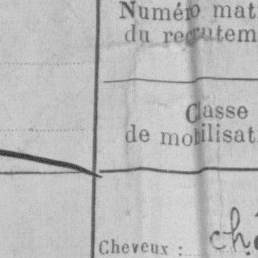 Numéro mat
du recrutem
Classe
de mobilisat
Cheveux : châ